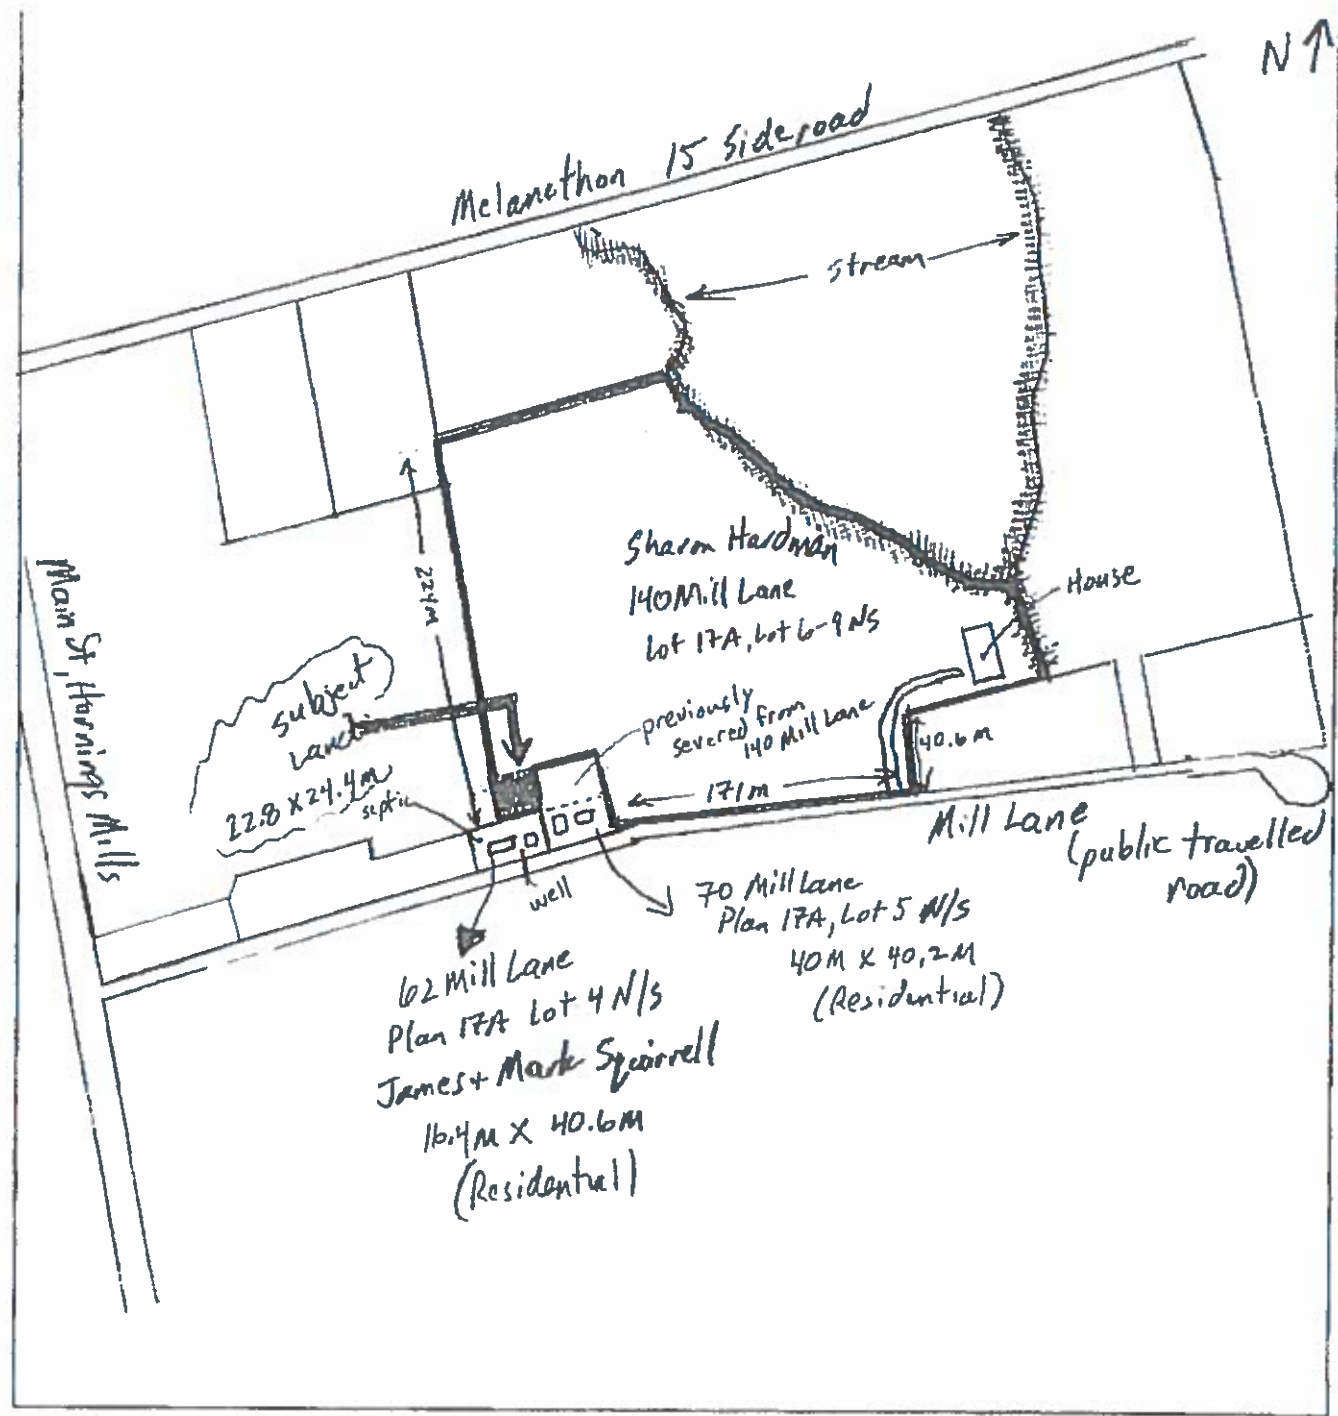 N
Melancthon 15 Sideroad
Stream
224m
Sharon Hardman
140 Mill Lane
Lot 17A, Lot 6-9 N/S
House
Main St, Hornings Mills
subject
Land
22.8 x 24.4m
septic
previously
severed from
140 Mill Lane
40.6m
171m
Mill Lane
(public travelled
road)
well
70 Mill Lane
Plan 17A, Lot 5 N/S
40M x 40,2M
(Residential)
62 Mill Lane
Plan 17A Lot 4 N/S
James + Mark Squirrell
16.4M x 40.6M
(Residential)